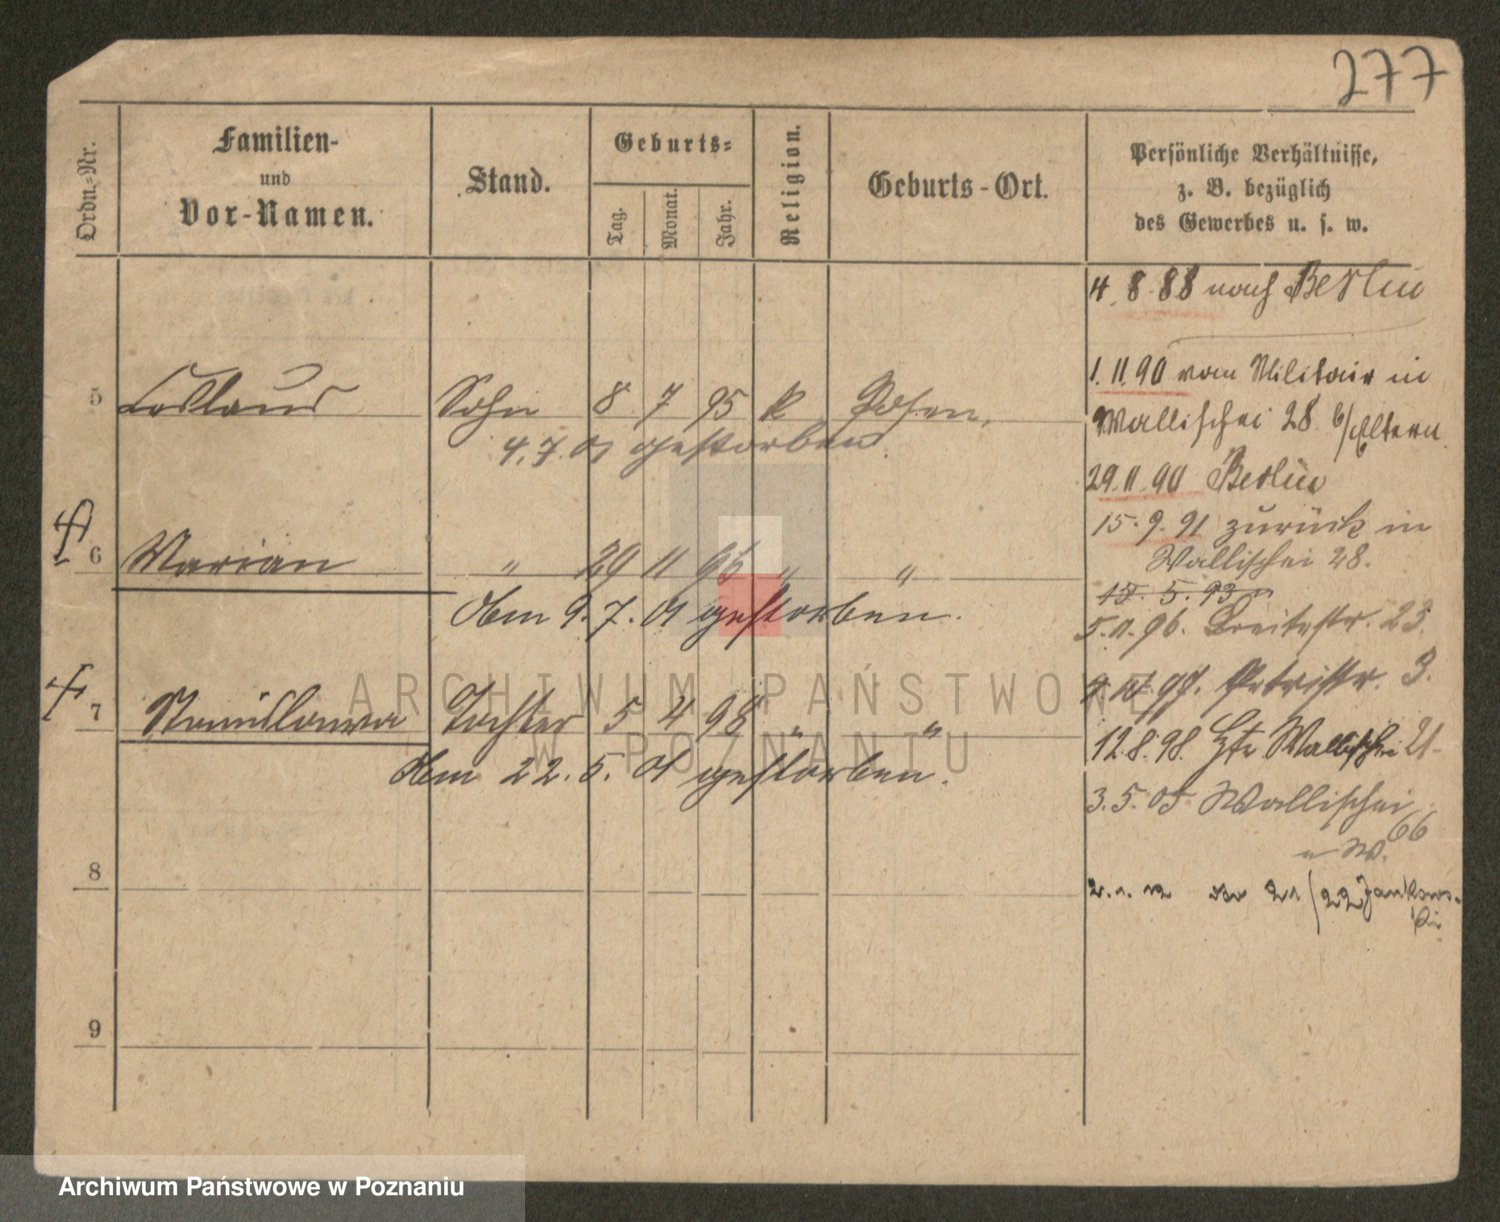 277
Ordn.-Nr.
Familien-
und
Vor-Namen.
Stand.
Geburts-
Tag.
Monat.
Jahr.
Religion.
Geburts-Ort.
Persönliche Verhältnisse,
z. B. bezüglich
des Gewerbes u. s. w.
4. 8. 88 nach Berlin
1. 11. 90 vom Militair in
Wallischei 28 b/Eltern
29. 11. 90 Berlin
15. 9. 91 zurück in
Wallischei 28.
15. 5. 93
5. 11. 96. Breitestr. 23.
97. Petristr. 3.
12. 8. 98. Wallischei 21
3. 5. 05 Wallischei
66
n W.
2. 1. 12 21/22 Jankows-
ki
5 Sohn 8 7 95 k Posen,
4. 7. 01 gestorben.
6 Marian " 29 11 96 " "
9. 7. 01 gestorben.
7 Stanislawa Tochter 5 4 98 " "
22. 5. 01 gestorben.
8
9
ARCHIWUM PAŃSTWOWE
W POZNANIU
Archiwum Państwowe w Poznaniu